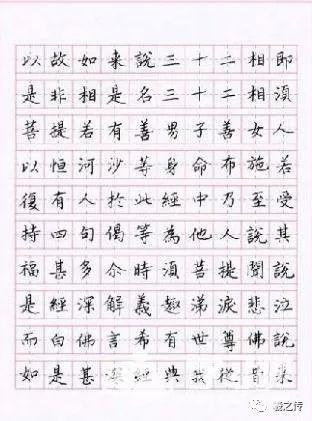 以故如来說三十二相即
是非相是名三十二相須
菩提若有善男子善女人
以恒河沙等身命布施若
復有人於此經中乃至受
持四句偈等為他人說其
福甚多尒時須菩提聞說
是經深解義趣涕淚悲泣
而白佛言希有世尊佛說
如是甚深經典我從昔来
羲之传